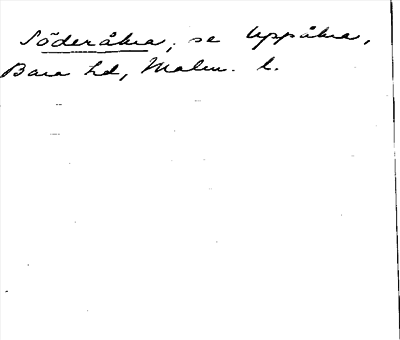 Söderåkra, se Uppåkra,
Bara hd, Malm. l.